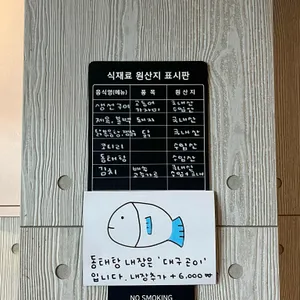 식재료 원산지 표시판
음식명(메뉴) 품 목 원 산 지
생선구이 고등어 국내산
가자미 수입산
제육, 불백 돼지 국내산
닭 국내산
코다리 수입산
동태탕 수입산
김치 배추 국내산
고춧가루
동태탕 내장은 '대구곤이'
입니다. 내장추가 +6,000₩
NO SMOKING